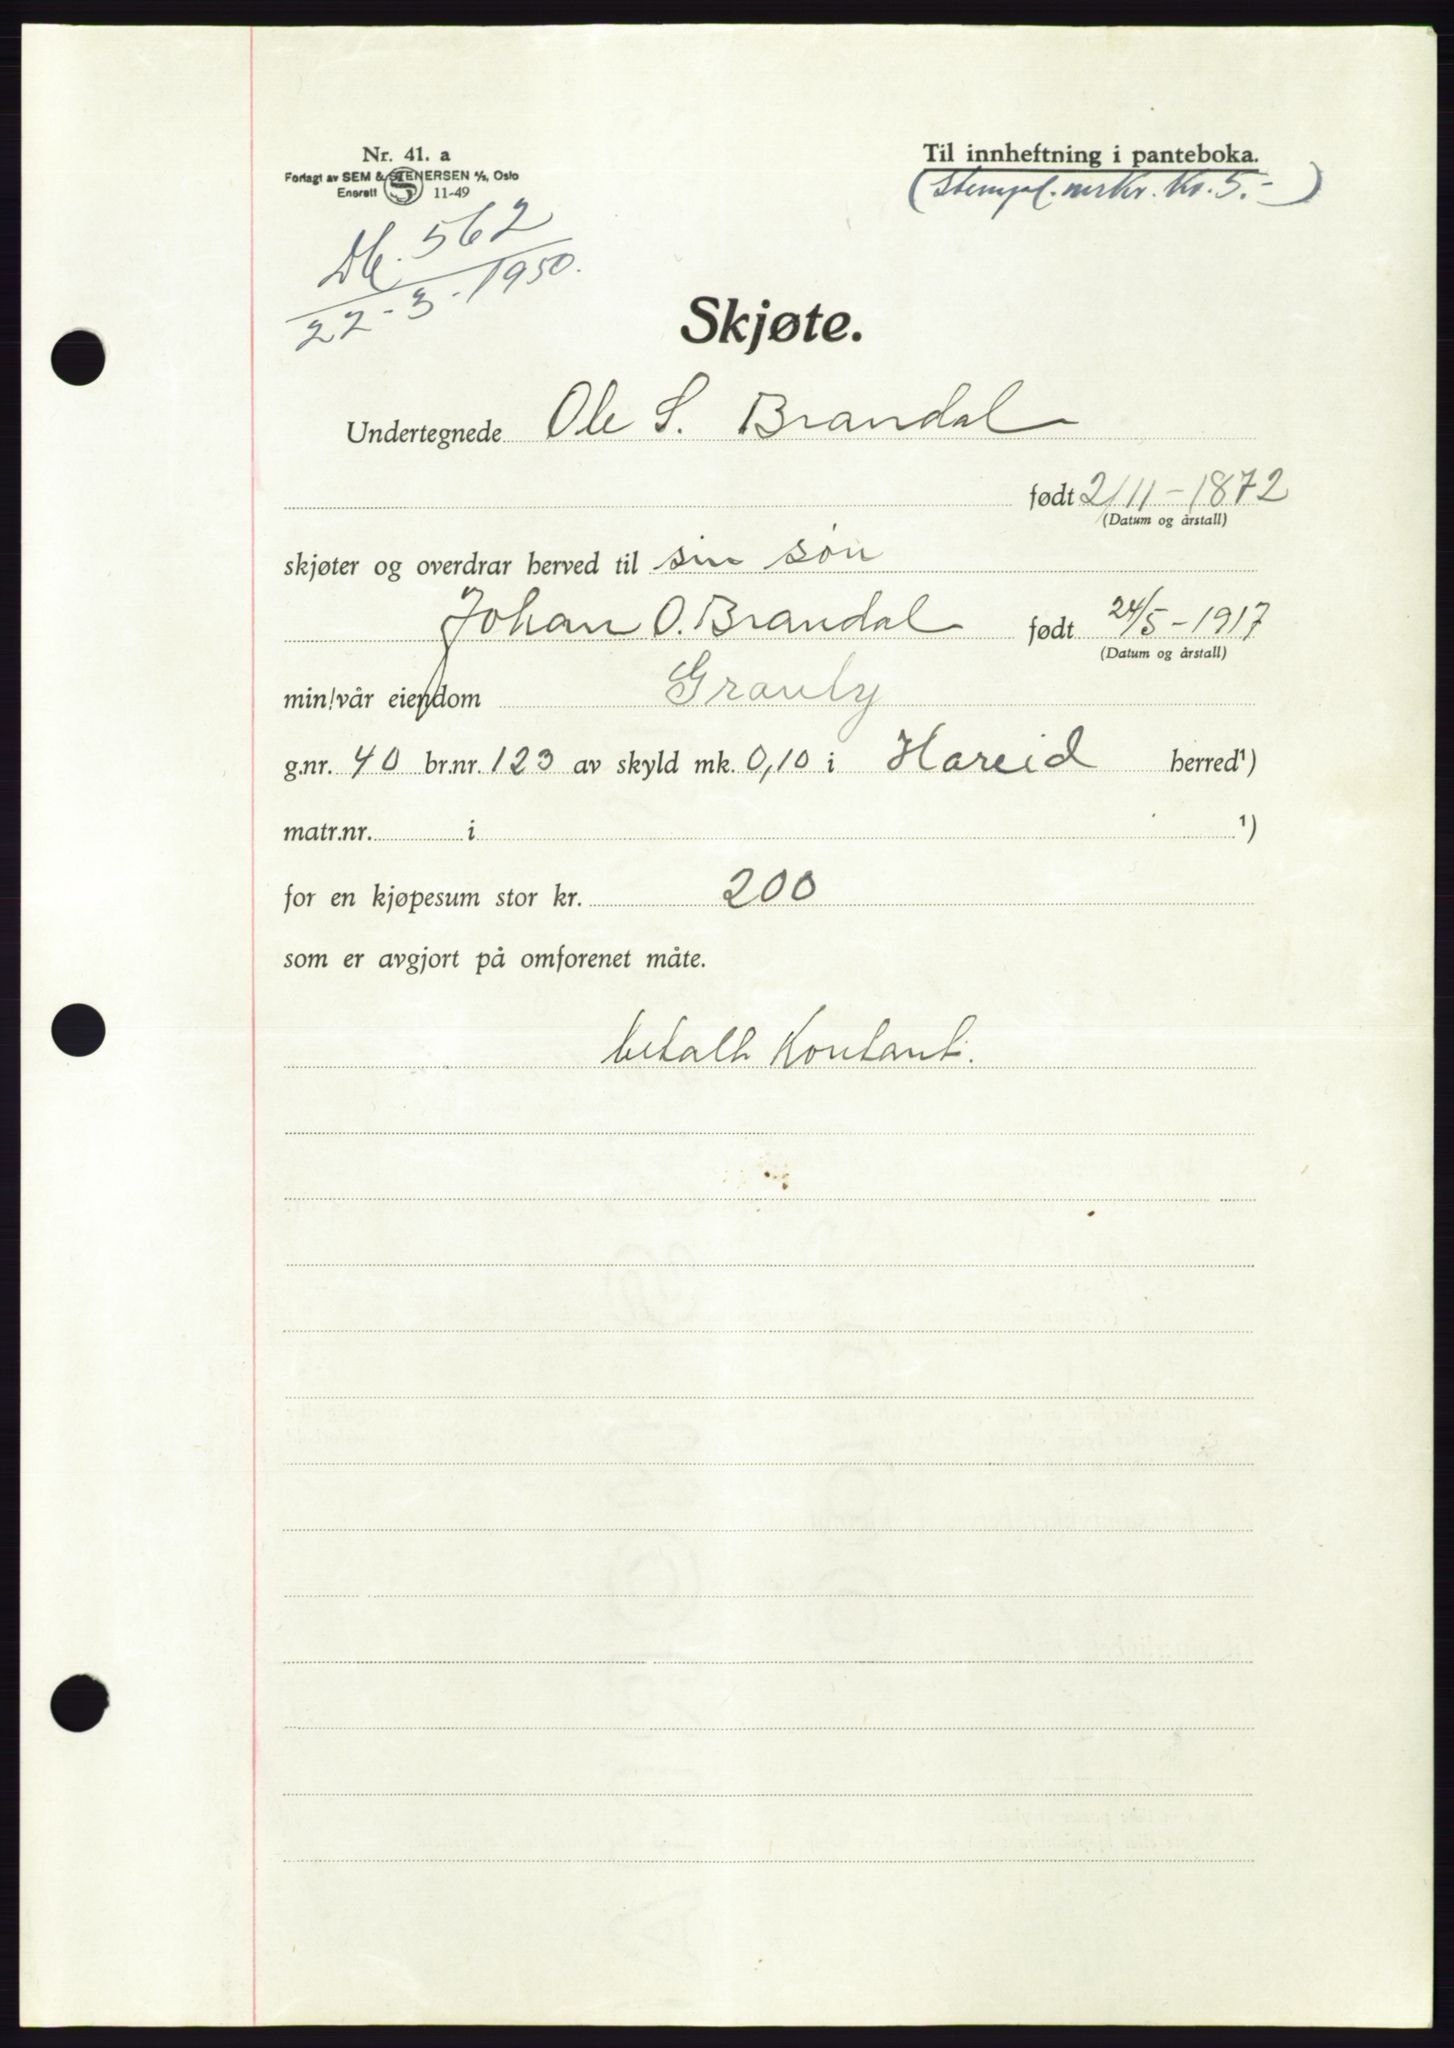 Nr. 41. a
Forlagt av SEM & STENERSEN A/S, Oslo
Enerett S 11-49
Til innheftning i panteboka.
(Stempel.merkr. Kr. 5.-)
Db. 562
22-3-1950.
Skjøte.
Undertegnede Ole S. Brandal
født 2/11-1872
(Datum og årstall)
skjøter og overdrar herved til sin søn
Johan O. Brandal født 24/5-1917
(Datum og årstall)
min/vår eiendom Granly
g.nr. 40 br.nr. 123 av skyld mk. 0,10 i Hareid herred¹)
matr.nr. i ¹)
for en kjøpesum stor kr. 200
som er avgjort på omforenet måte.
betalt Kontant.